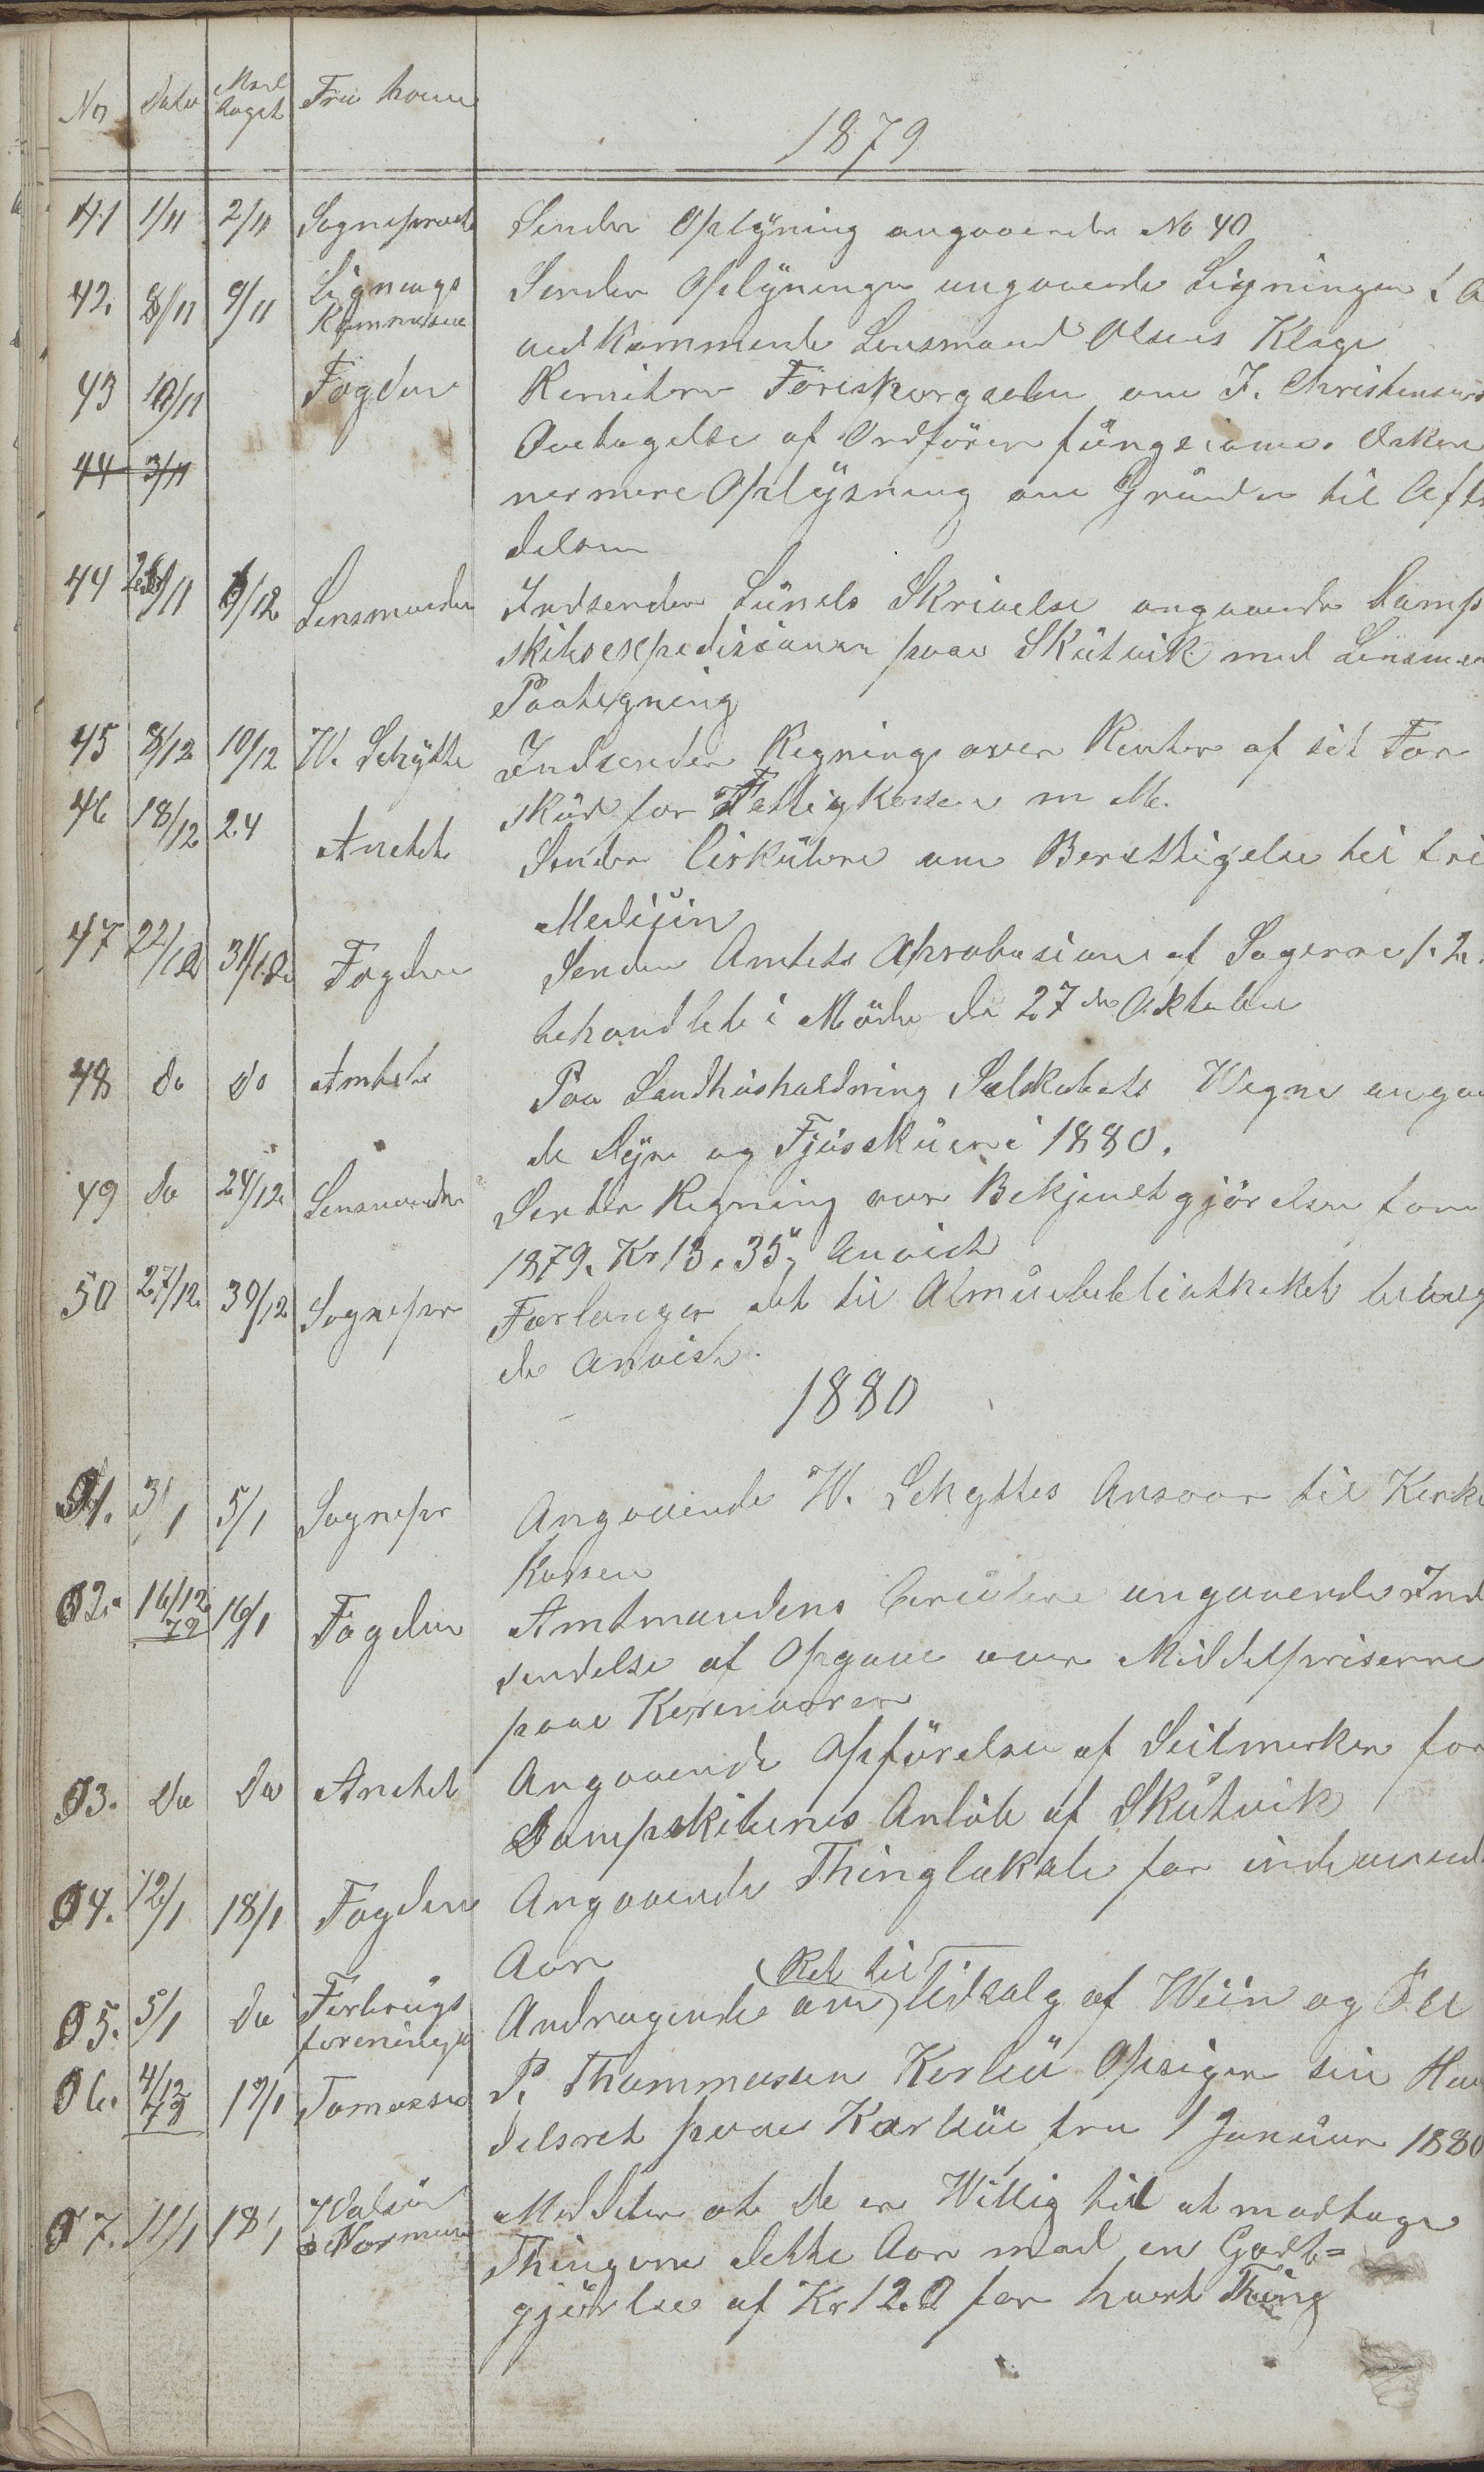 No Dato Mod taget Fra hvem
1879
41 1/11 2/11 Sognepræst Sender Oplysning angaaende No 40
42. 8/11 9/11 Lignings Kommissionen Sender Oplysninger angaaende Ligningen
vedkommende Lensmand Olsens Klage
43 10/11 Fogden Remiterer Forespørgselen om J. Christensens
Overtagelse af Ordförer füngsionen. Ønsker
44 3/11 nermere Oplysning om Grunden til Aftræ
delsen
44 11 6/12 Lensmanden Indsender Lünds Skrivelse angaaende Damp
skibsexpedisionen paa Skütvik med Lensman
Paategning
45 8/12 10/12 W. Schytte Indsender Regning over Renter af sit For
skud for Fattigkassen m M.
46 18/12 24 Amtet Sender Cirkülere om Berettigelse til fri
Medisin
47 22/12 31/12 Fogden Sender Amtets Aprobasion af Sagerne 1. 2.
behandlet i Möde den 27de Oktober
48 do do Amtet Paa Landhüsholdning Selskabets Vegne angaa
de Dyr og Fjøsskuer i 1880.
49 do 24/12 Lensmanden Sender Regning over Bekjendtgjörelser for
1879. Kr 13.35, Anvist
50 27/12 30/12 Sognepr Forlanger det til Almuebibliotheket bevilg
de Anvist.
1880
1. 3/1 5/1 Sognepr Angaaende W. Schyttes Ansvar til Kirke
Kassen
2. 16/12 79 16/1 Fogden Amtmandens Circulere angaaende Ind
sendelse af Opgave over Middelpriserne
paa Kornvarer
3. Do Do Amtet Angaaende Opförelse af Seilmerker for
Dampskibenes Anlöb af Skütvik
4. 12/1 18/1 Fogden Angaaende Thinglokale for indeværend
Aar
5. 5/1 Do Forbrügs foreningen Andragende om Ret til Udsalg af Wiin og Øll
6. 4/12 79 17/1 Tomassen P. Thommassen Korsü Opsiger sin Han
delsret paa Korsü fra 1 Januar 1880
7. 11/1 18/1 & Normann Meddeler at de er Willig til at modtage
Thingene dette Aar mod en Godt=
gjörelse af Kr 12.0 for hvert Thing